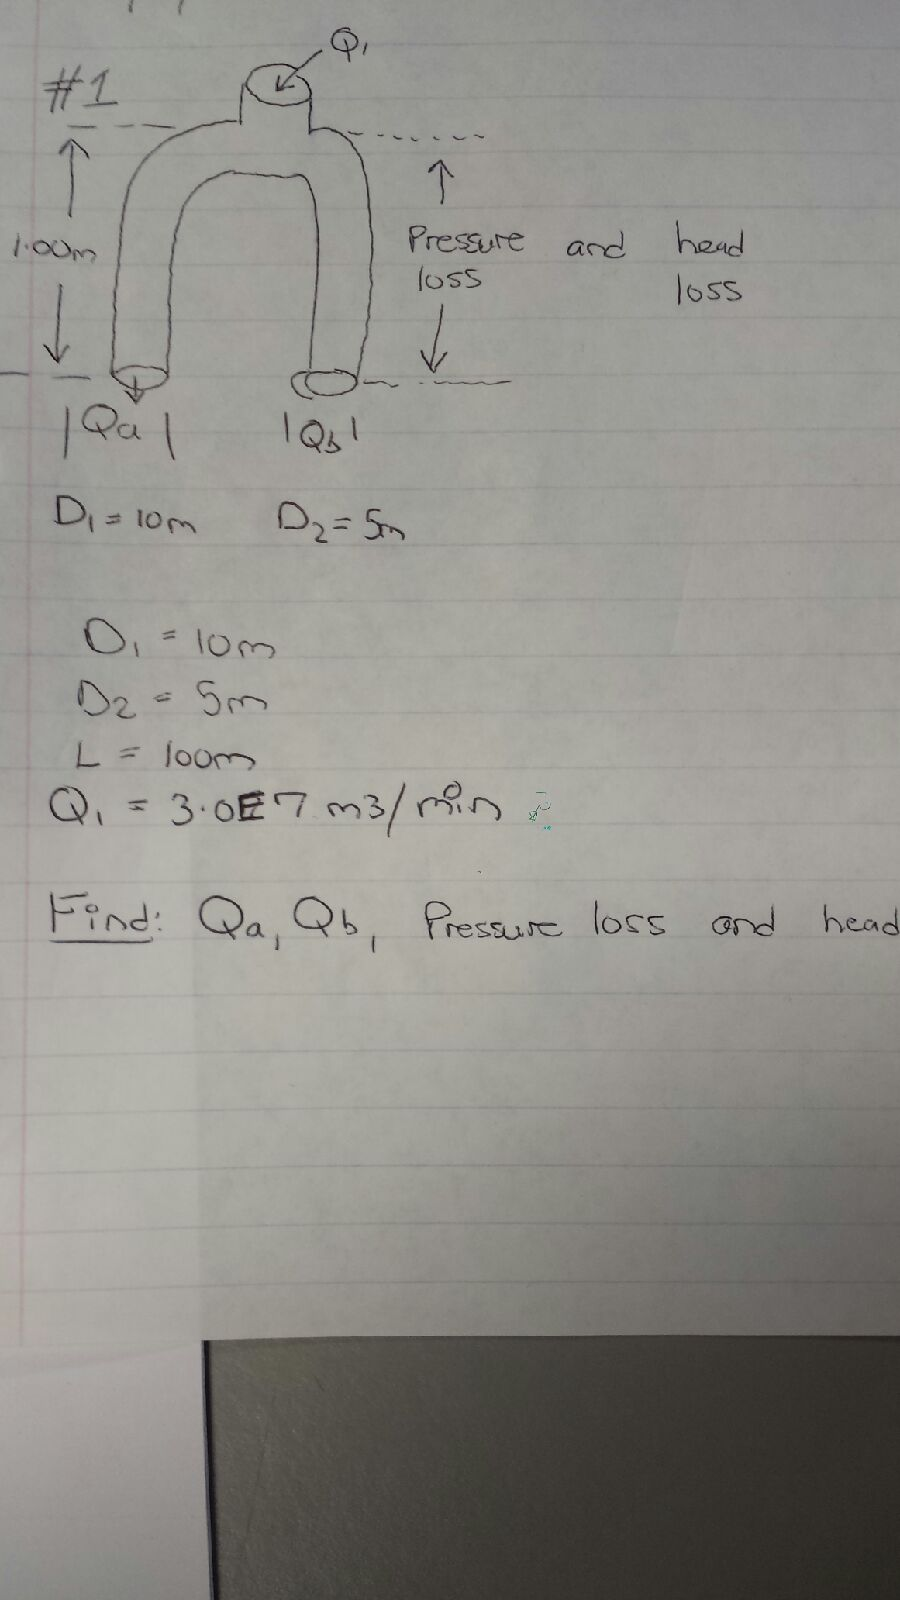 Q1
#1
1.00m
Pressure and head
loss loss
|Qa| |Qb|
D1 = 10m D2 = 5m
D1 = 10m
D2 = 5m
L = 100m
Q1 = 3.0E7 m3/min
Find: Qa, Qb, Pressure loss and head